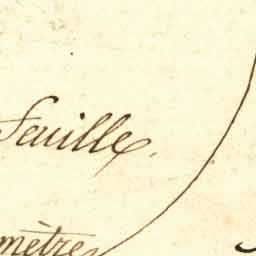 feuille.
mètre